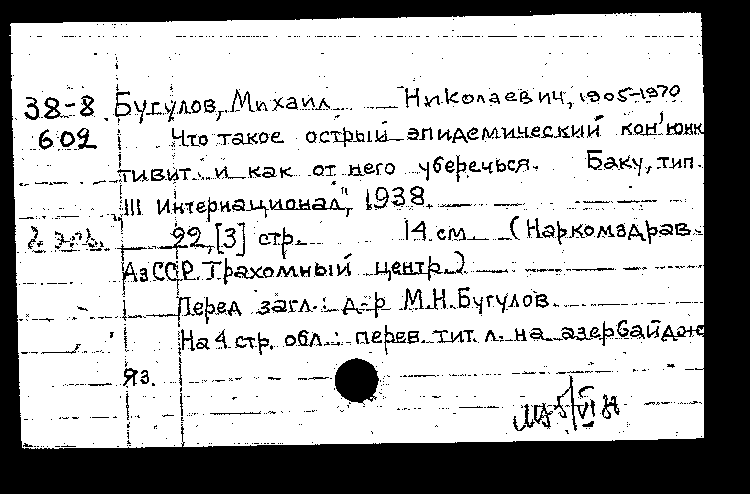 38-8 Бугулов, Михаил Николаевич, 1905-1970
609 Что такое острый эпидемический кон'юнк
тивит и как от него уберечься. Баку, тип.
"III Интернационал", 1938.
2 экз. 22, [3] стр. 14 см. (Наркомздрав
АзССР. Трахомный центр.)
Перед загл.: д-р М.Н. Бугулов.
На 4 стр. обл.: перев. тит. л. на азербайдж
яз.
5/VI